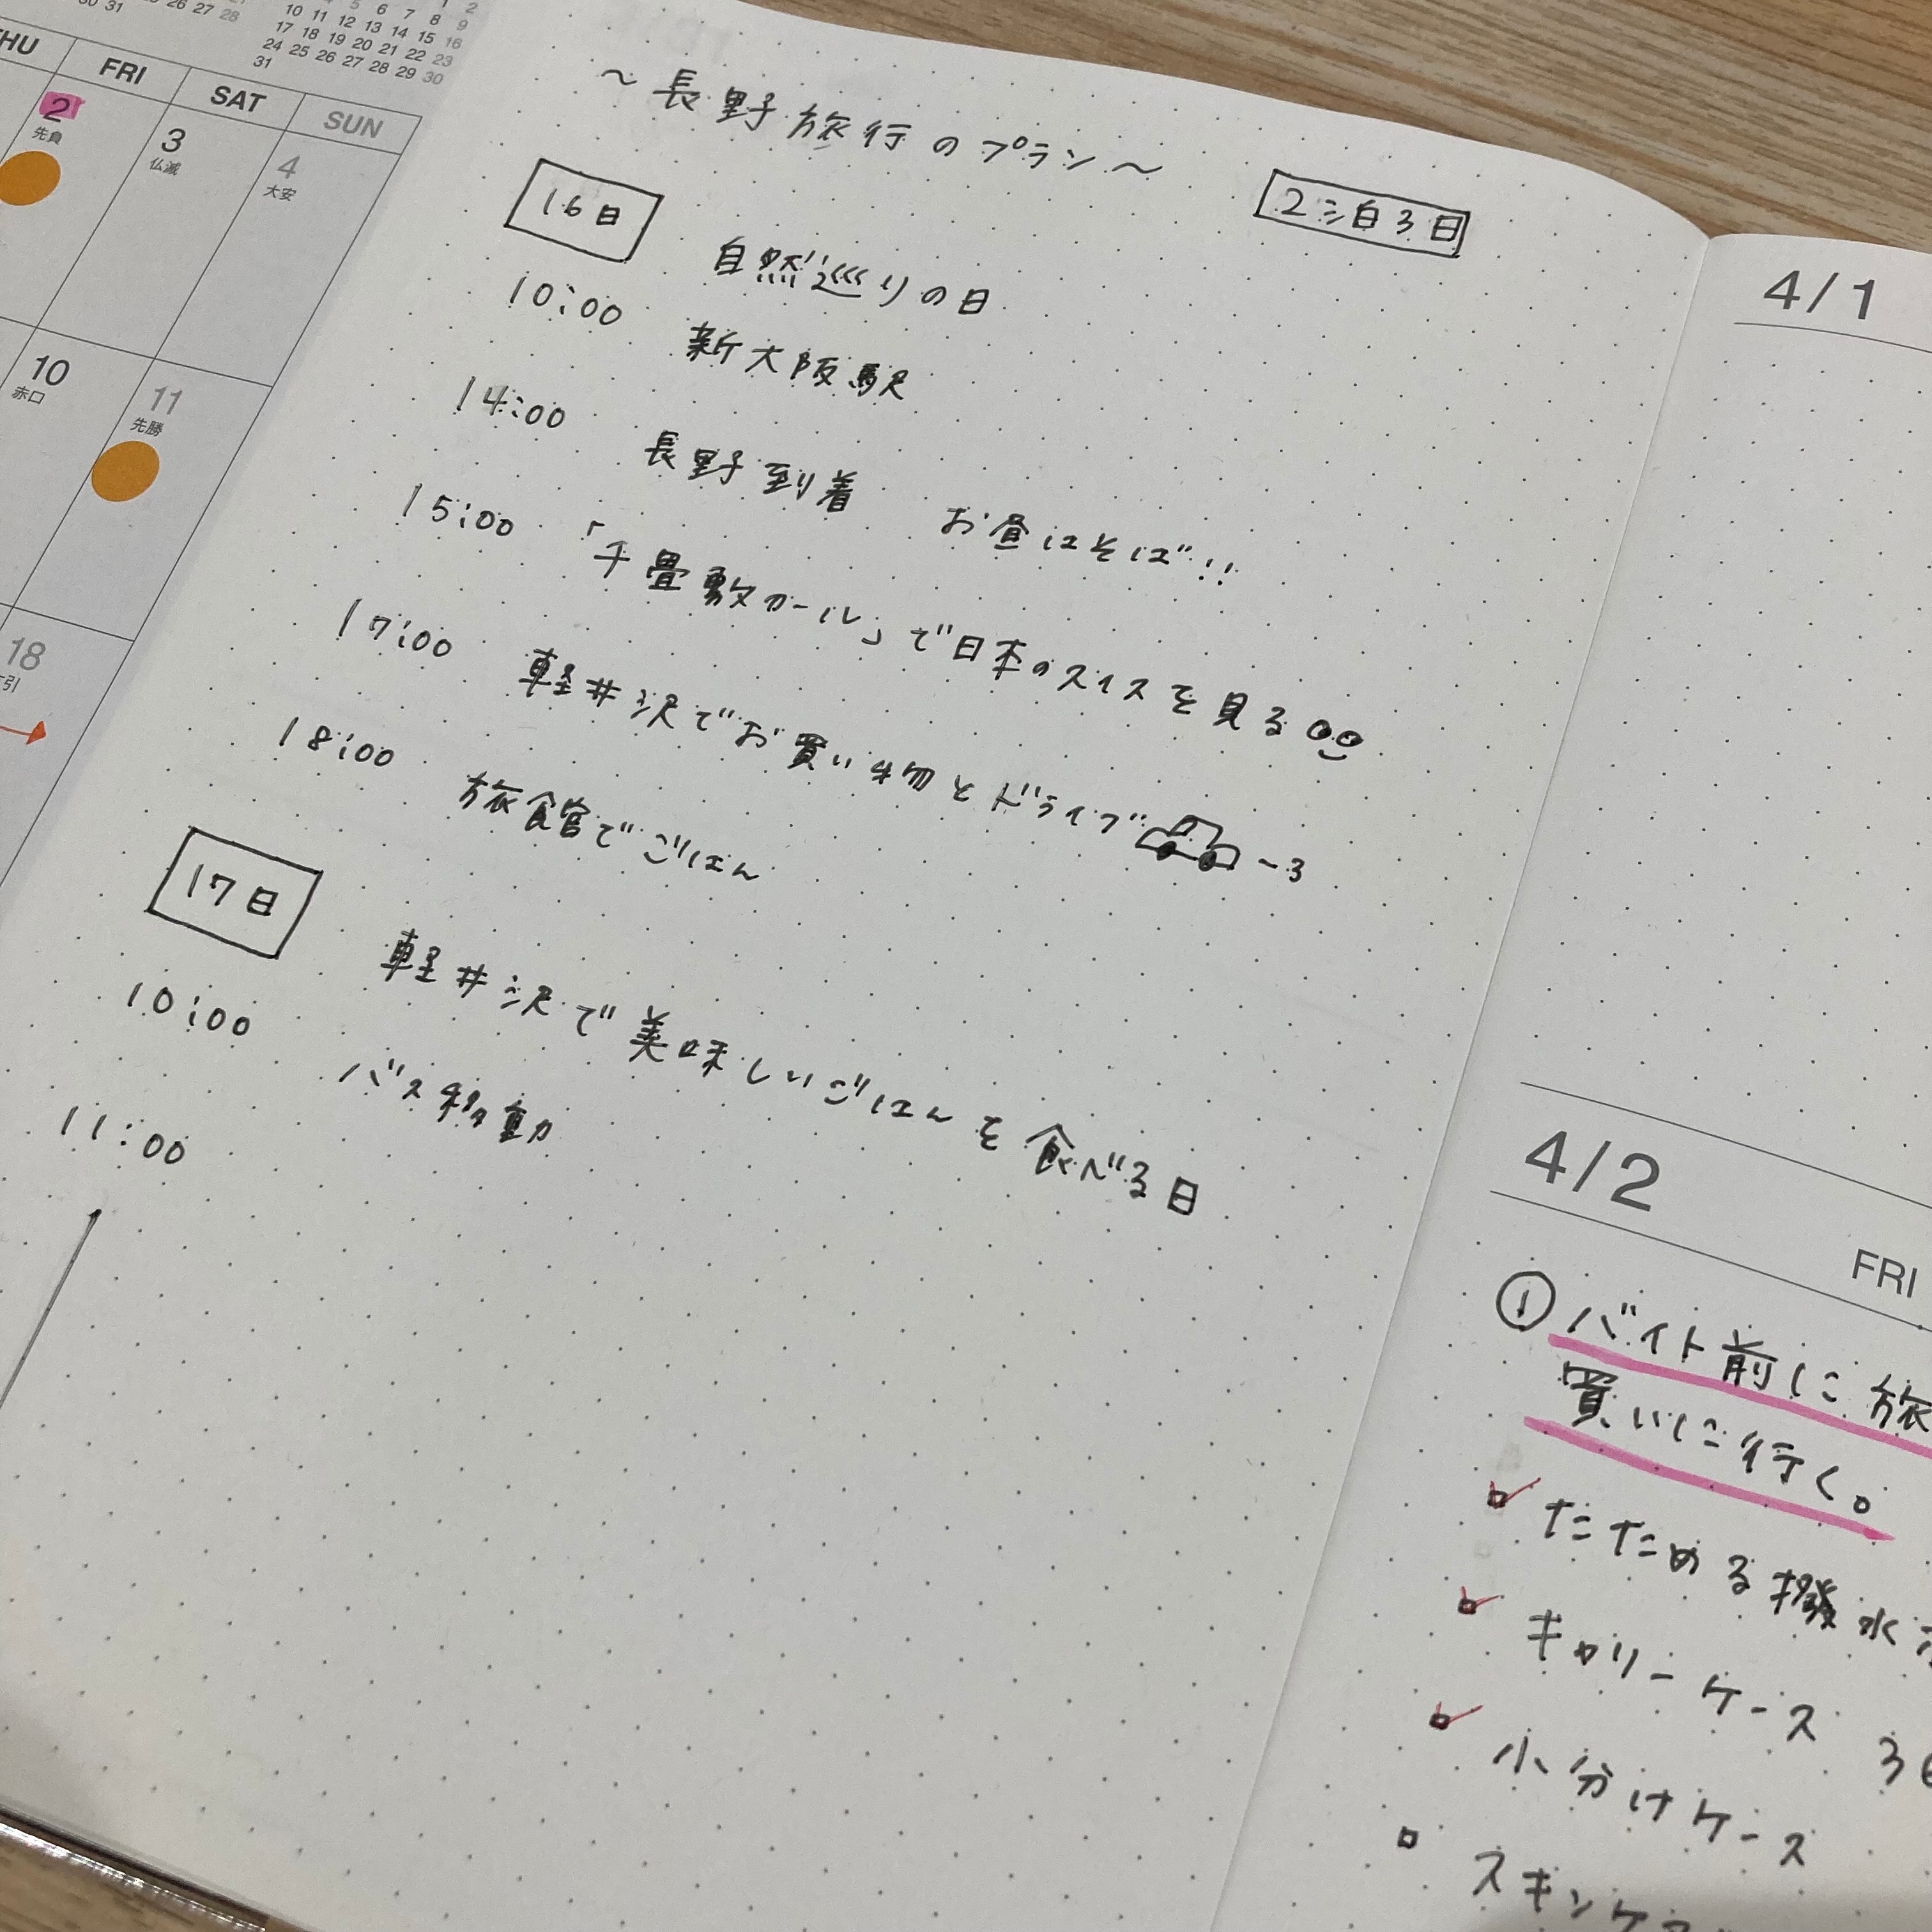 10 11 12 13 14 15 16
17 18 19 20 21 22 23
24 25 26 27 28 29 30
31
FRI SAT SUN
2 3 4
先負 仏滅 大安
10 11
赤口 先勝
18
～長野旅行のプラン～
2泊3日
16日 自然巡りの日
10:00 新大阪駅
14:00 長野到着 お昼はそば!!
15:00 「千畳敷カール」で日本のスイスを見る
17:00 軽井沢でお買い物とドライブ
18:00 旅館でごはん
17日 軽井沢で美味しいごはんを食べる日
10:00 バス移動
11:00
4/1
4/2
FRI
① バイト前に旅
買いに行く。
たためる撥水
キャリーケース 3
小分けケース
スキンケア